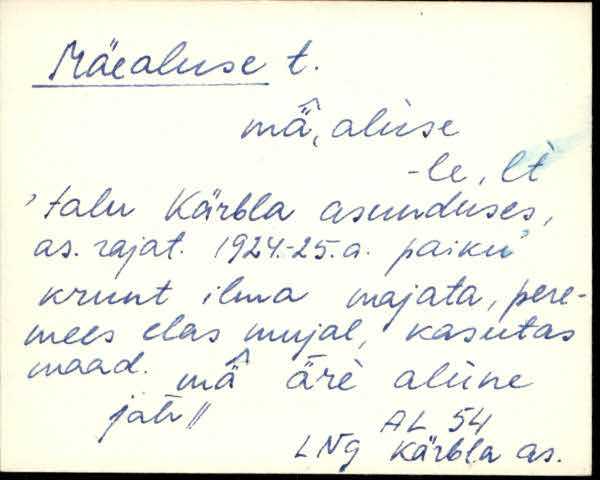 Mäealuse t.
mä̂, aluse
-le, lt
'talu Kärbla asunduses,
as. rajat. 1924.-25.a. paiku'
krunt ilma majata, pere-
mees elas mujal, kasutas
maad. mä̂ äre alune
jät //
AL 54
LNg Kärbla as.